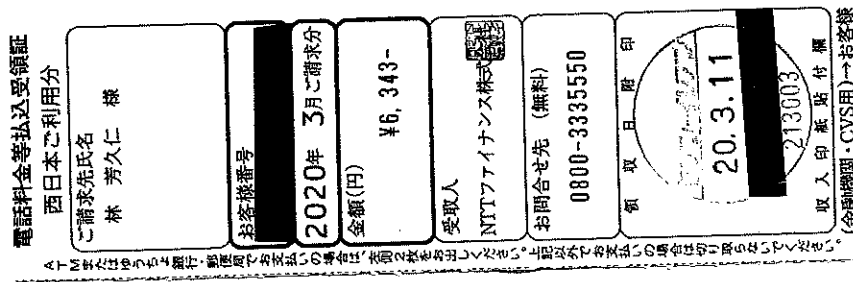 電話料金等払込受領証
西日本ご利用分
ご請求先氏名
林 芳久仁 様
お客様番号
2020年 3月ご請求分
金額(円)
¥6,343-
受取人
NTTファイナンス株式会社
お問合せ先 (無料)
0800-3335550
領収日附印
20.3.11
213003
収入印紙貼付欄
(金融機関・CVS用)→お客様
ATMまたはゆうちょ銀行・郵便局でお支払いの場合は、左側2枚をお出しください。上記以外でお支払いの場合は切り取らないでください。